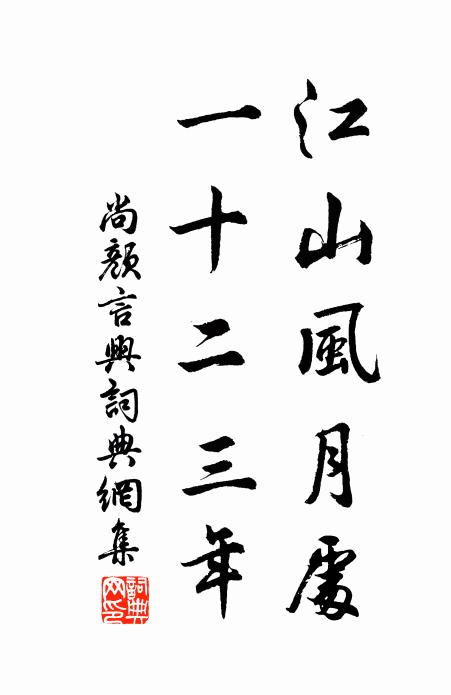 江山風月處
一十二三年
尚顏言興詞典網集
詞典網印